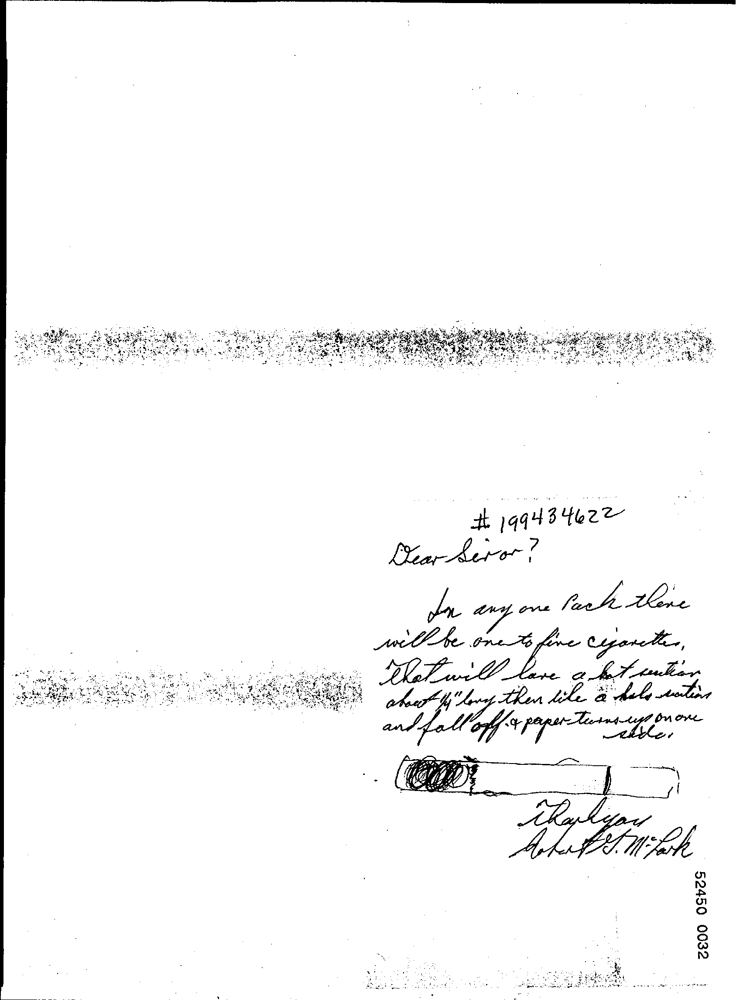 # 199434622
Dear Sir or?
In any one Pack there
will be one to five cigarettes,
That will have a hot section
about 1/4" long then like a hole
and fall off. & paper turns up on one
side.
Thank you
Robert G.
52450 0032